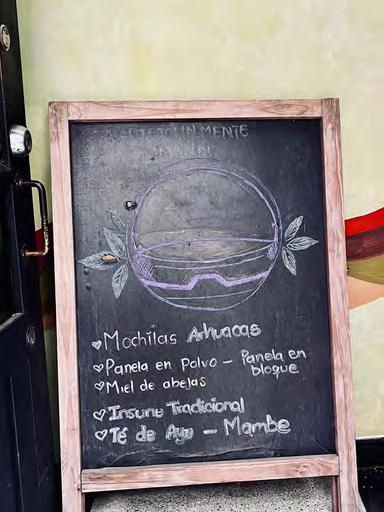 Mochilas Arhuacas
Panela en Polvo - Panela en bloque
Miel de abejas
Insumo Tradicional
Té de Ayu - Mambe